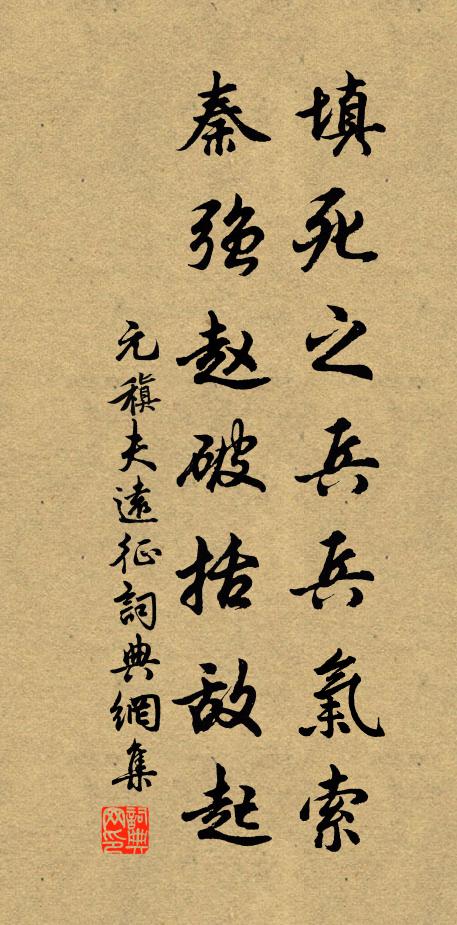 填死之兵兵氣索
秦强赵破括敌起
元稹夫遠征詞典網集
詞典网印